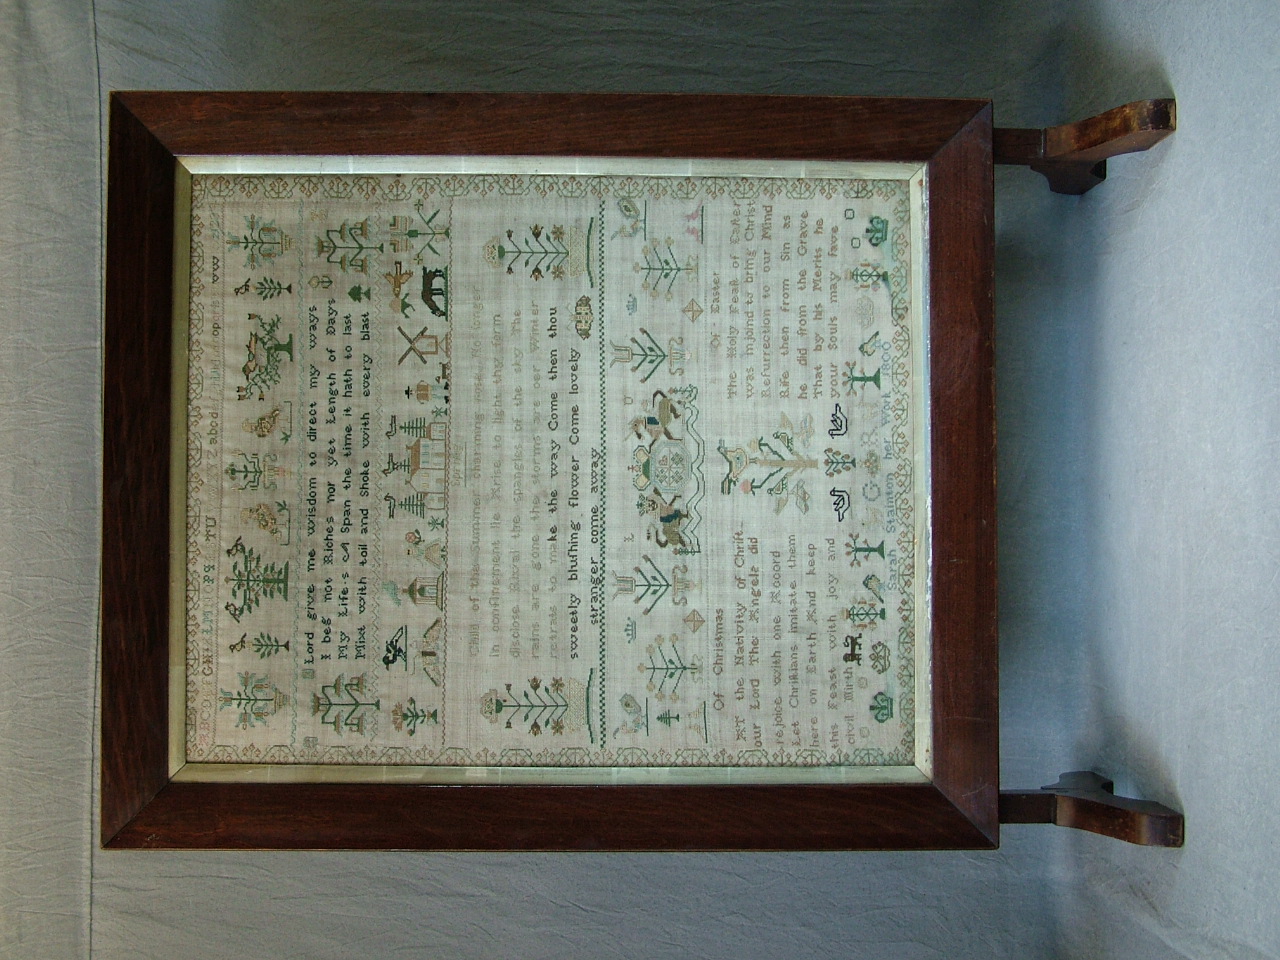 ABCDEFGHIKLMNOPQ TU
Lord give me wisdom to direct my ways
I beg not Riches nor yet Length of Days
My Life·s A Span the time it hath to last
Mixt with toil and Shoke with every blast
Child of the summer charming rose No longer
in confinement lie Arise to light thy form
disclose Rival the spangles of the sky The
rains are gone the storms are oer winter
retreats to make the way Come then thou
sweetly bluſhing flower Come lovely
stranger come away
Of Christmas
AT the Nativity of Chriſt
our Lord The Angels did
rejoice with one Accord
Let Chriſtians imitate them
here on Earth And keep
this Feast with joy and
civil Mirth
Of Easter
The Holy Feaſt of Eaſter
was injoind to bring Christ
Reſurrection to our Mind
Riſe then from Sin as
he did from the Grave
That by his Merits he
your Souls may ſave
Sarah Stainton her Work 1800